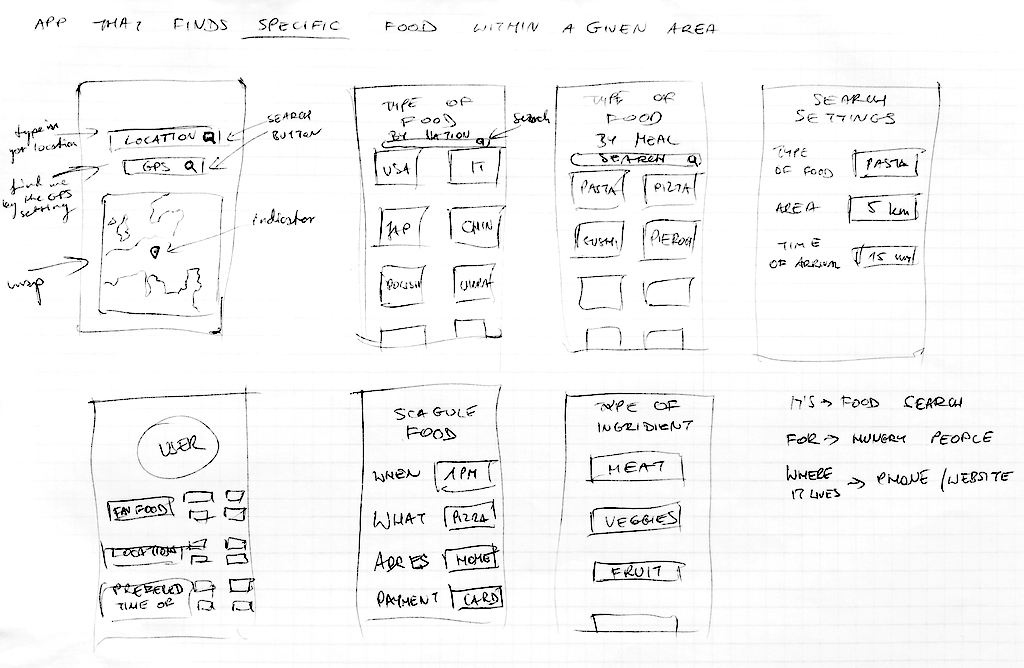 APP THAT FINDS SPECIFIC FOOD WITHIN A GIVEN AREA
type in
your location
LOCATION
SEARCH
BUTTON
GPS
find me
by the GPS
setting
indicator
map
TYPE OF
FOOD
BY NATION
search
USA
IT
JAP
CHIN
POLISH
TYPE OF
FOOD
BY MEAL
SEARCH
PASTA
PIZZA
SUSHI
PIEROGI
SEARCH
SETTINGS
TYPE
OF FOOD
PASTA
AREA
5 km
TIME
OF ARRIVAL
15 min
USER
FAV FOOD
LOCATION
PREFERED
TIME OF
SCAGULE
FOOD
WHEN
1 PM
WHAT
PIZZA
ADRES
HOME
PAYMENT
CARD
TYPE OF
INGRIDIENT
MEAT
VEGGIES
FRUIT
IT'S → FOOD SEARCH
FOR → HUNGRY PEOPLE
WHERE
IT LIVES → PHONE / WEBSITE